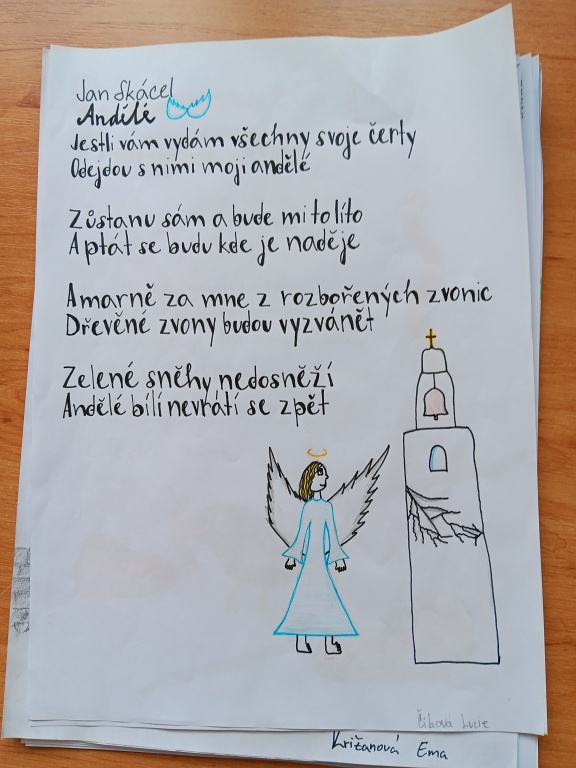 Jan Skácel
Andělé
Jestli vám vydám všechny svoje čerty
Odejdou s nimi moji andělé
Zůstanu sám a bude mi to líto
A ptát se budu kde je naděje
A marně za mne z rozbořených zvonic
Dřevěné zvony budou vyzvánět
Zelené sněhy nedosněží
Andělé bílí nevrátí se zpět
Čibová Lucie
Križanová Ema